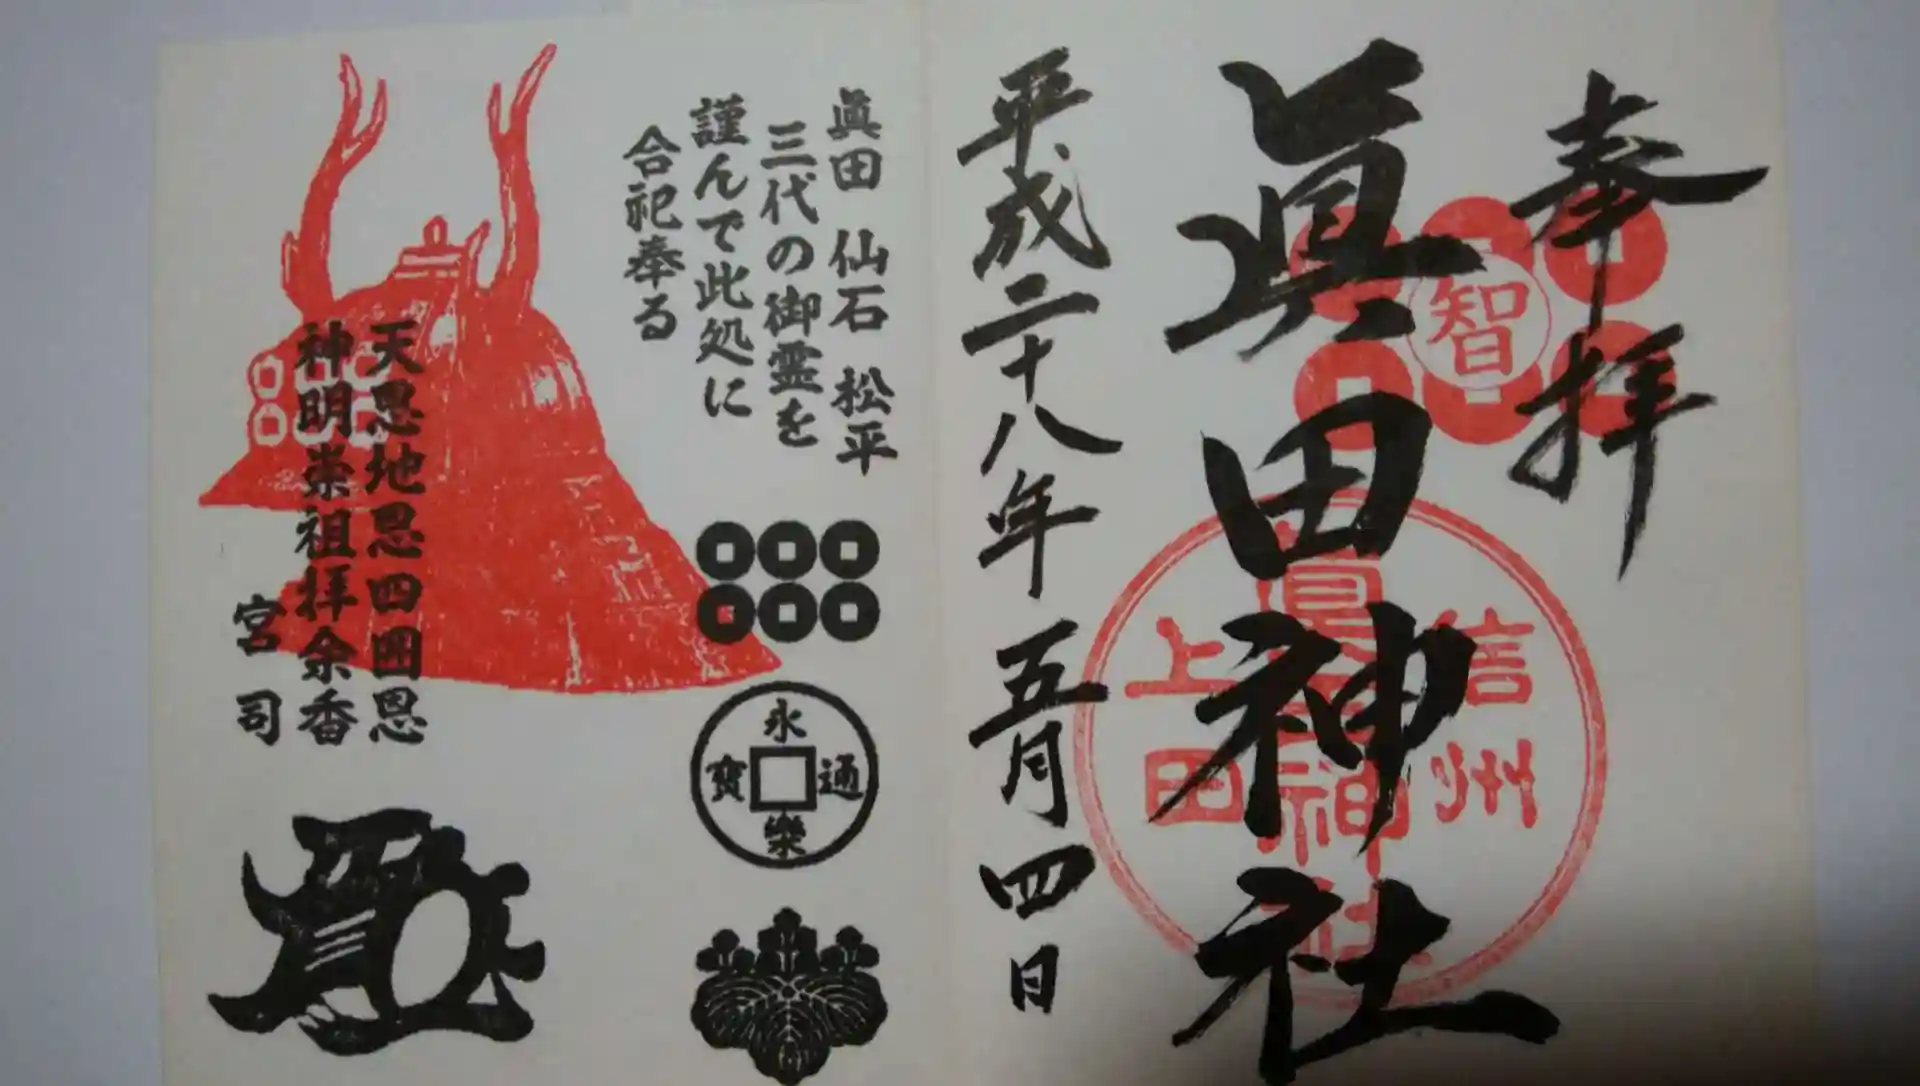 奉拝
智
眞田神社
信州
眞田神社
上田
平成二十八年五月四日
眞田 仙石 松平
三代の御霊を
謹んで此処に
合祀奉る
永樂通寳
天恩地恩四囲恩
神明崇祖拝余香
宮司